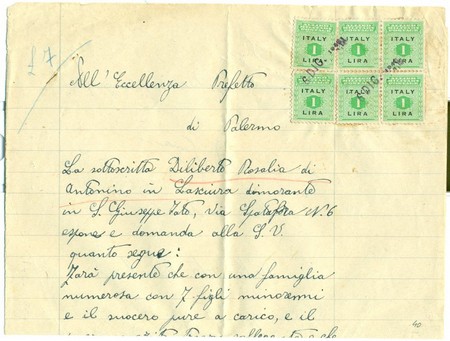 £ 7
ITALY 1 LIRA
ITALY 1 LIRA
ITALY 1 LIRA
ITALY 1 LIRA
ITALY 1 LIRA
ITALY 1 LIRA
All'Eccellenza Prefetto
di Palermo
La sottoscritta Diliberto Rosalia di
Antonino in Lasciura dimorante
in S. Giuseppe Jato, Via Spatafora N. 6
espone e domanda alla S. V.
quanto segue:
Farà presente che con una famiglia
numerosa con 7 figli minorenni
e il suocero pure a carico, e il